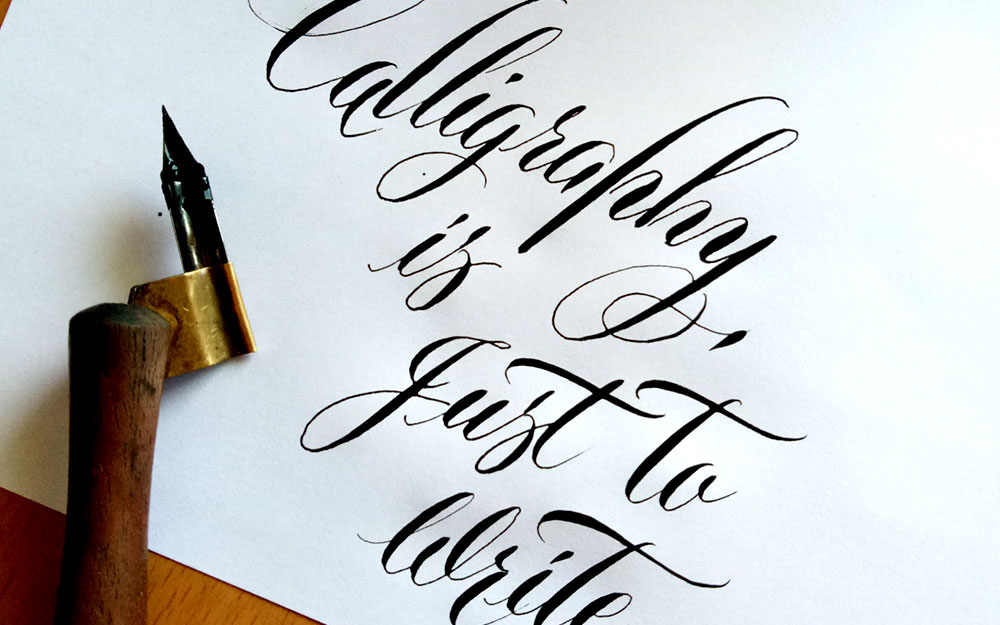 Calligraphy,
is
Just to
Write